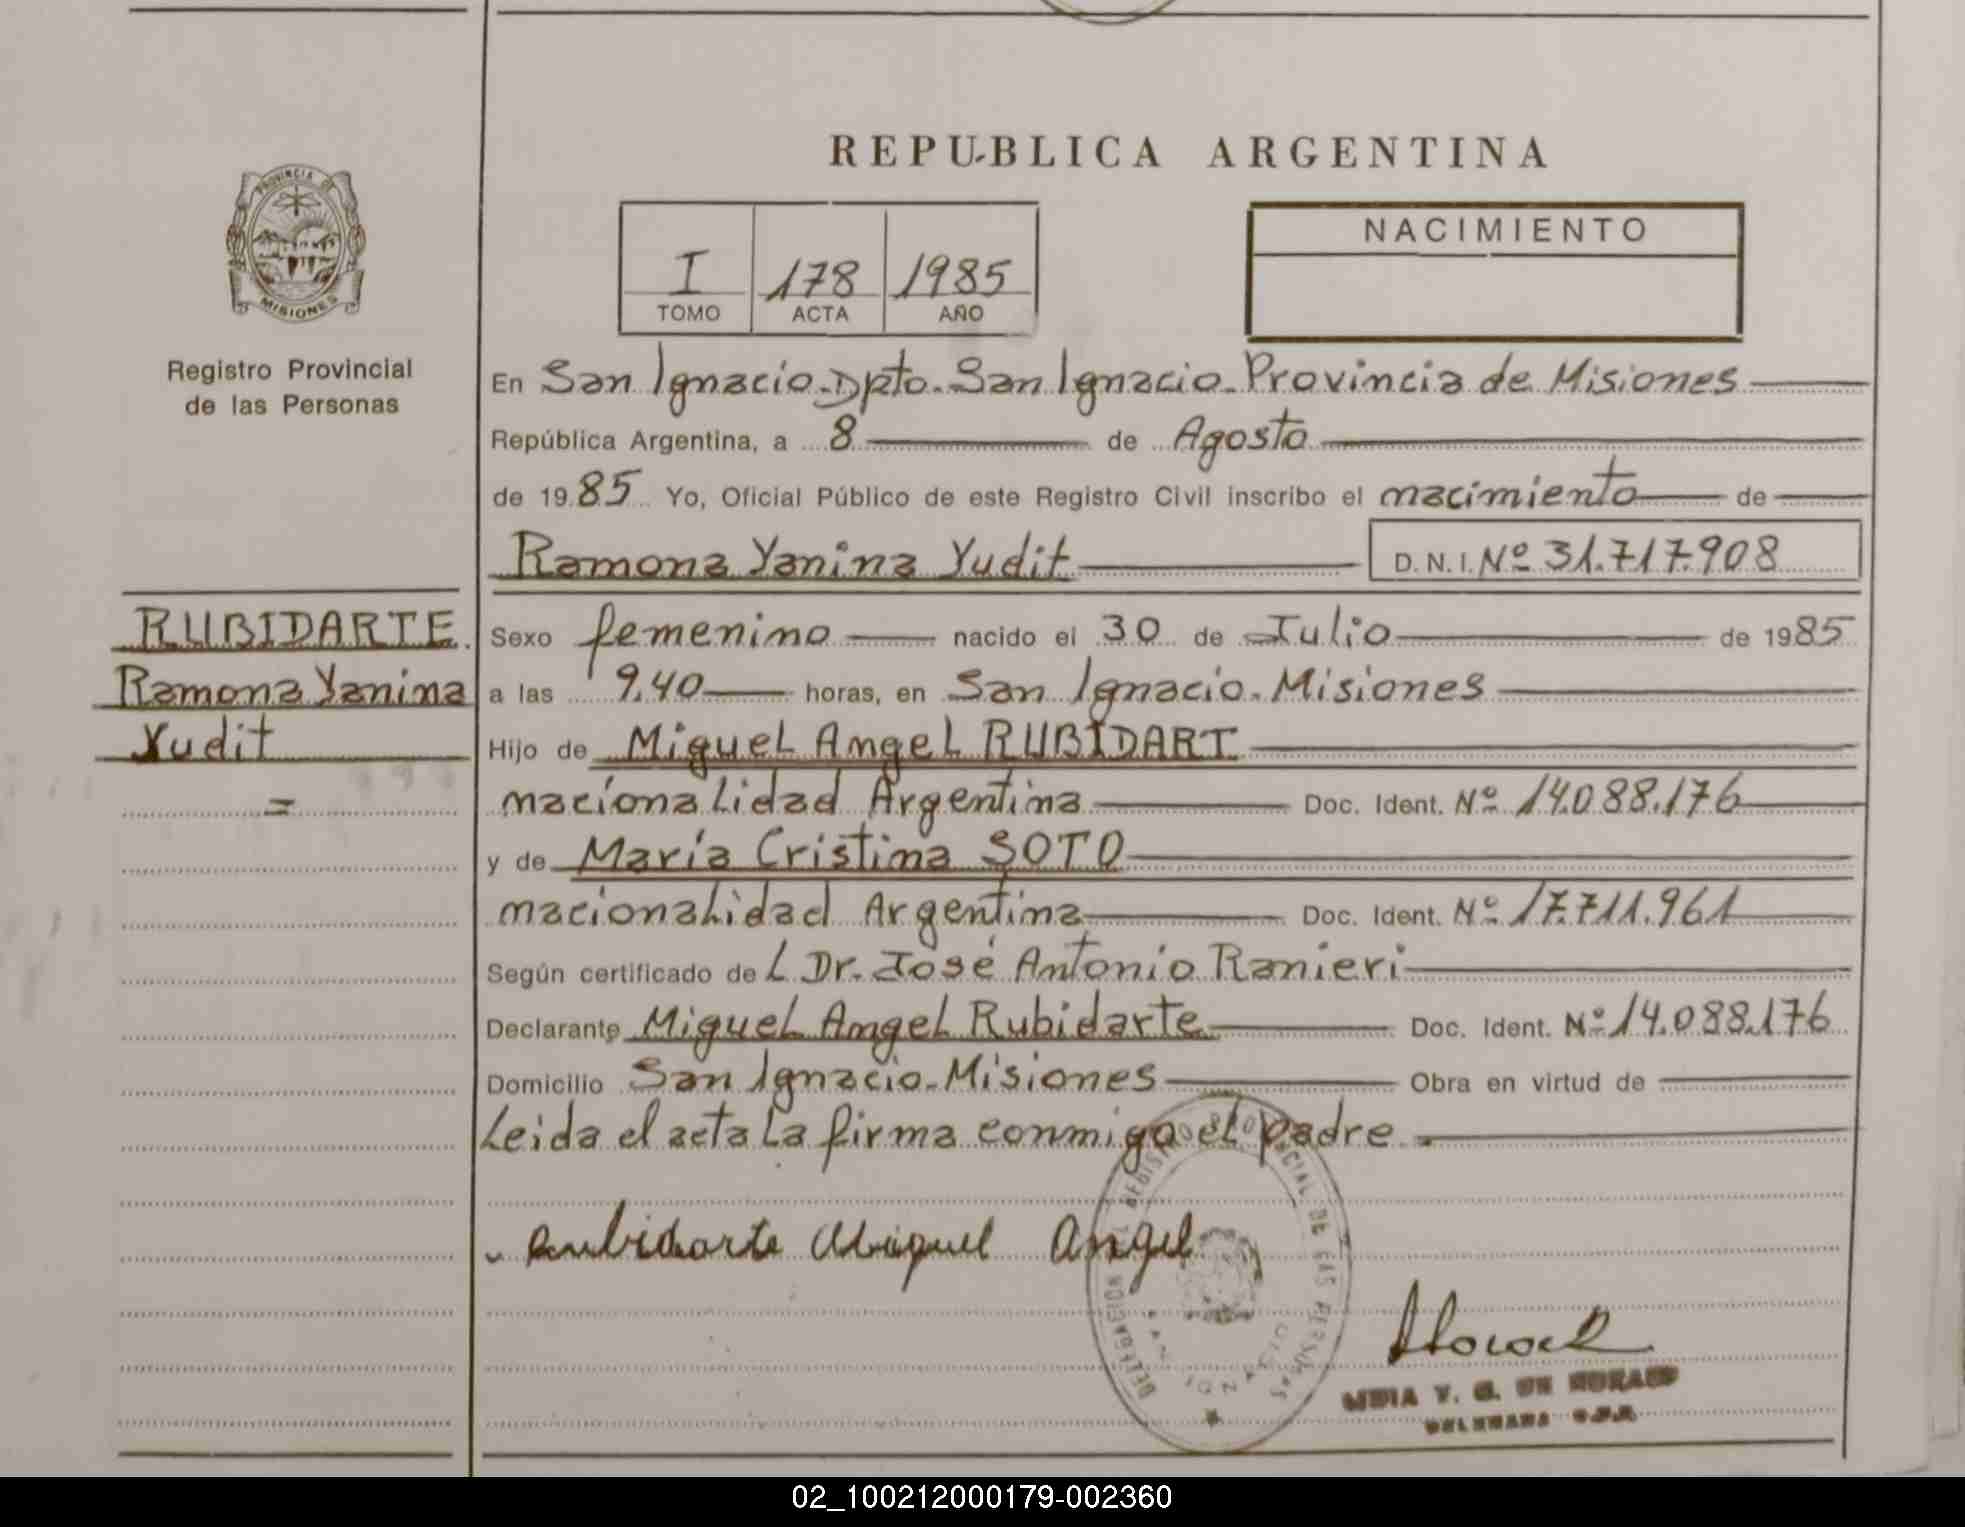 REPUBLICA ARGENTINA
PROVINCIA DE MISIONES
Registro Provincial
de las Personas
I 178 1985
TOMO ACTA AÑO
NACIMIENTO
En San Ignacio-Dpto. San Ignacio-Provincia de Misiones
República Argentina, a 8 de Agosto
de 1985 Yo, Oficial Público de este Registro Civil inscribo el nacimiento de
Ramona Yanina Yudit D. N. I. Nº 31.717.908
RUBIDARTE.
Ramona Yanina
Yudit
=
Sexo femenino nacido el 30 de Julio de 1985
a las 9,40 horas, en San Ignacio-Misiones
Hijo de Miguel Angel RUBIDART
nacionalidad Argentina Doc. Ident. Nº 14.088.176
y de María Cristina SOTO
nacionalidad Argentina Doc. Ident. Nº 17.711.961
Según certificado del Dr. José Antonio Ranieri
Declarante Miguel Angel Rubidarte Doc. Ident. Nº 14.088.176
Domicilio San Ignacio-Misiones Obra en virtud de
Leida el acta la firma conmigo el padre.
Rubidarte Miguel Angel
DELEGACION REGISTRO PROVINCIAL DE LAS PERSONAS
SAN IGNACIO
02_100212000179-002360